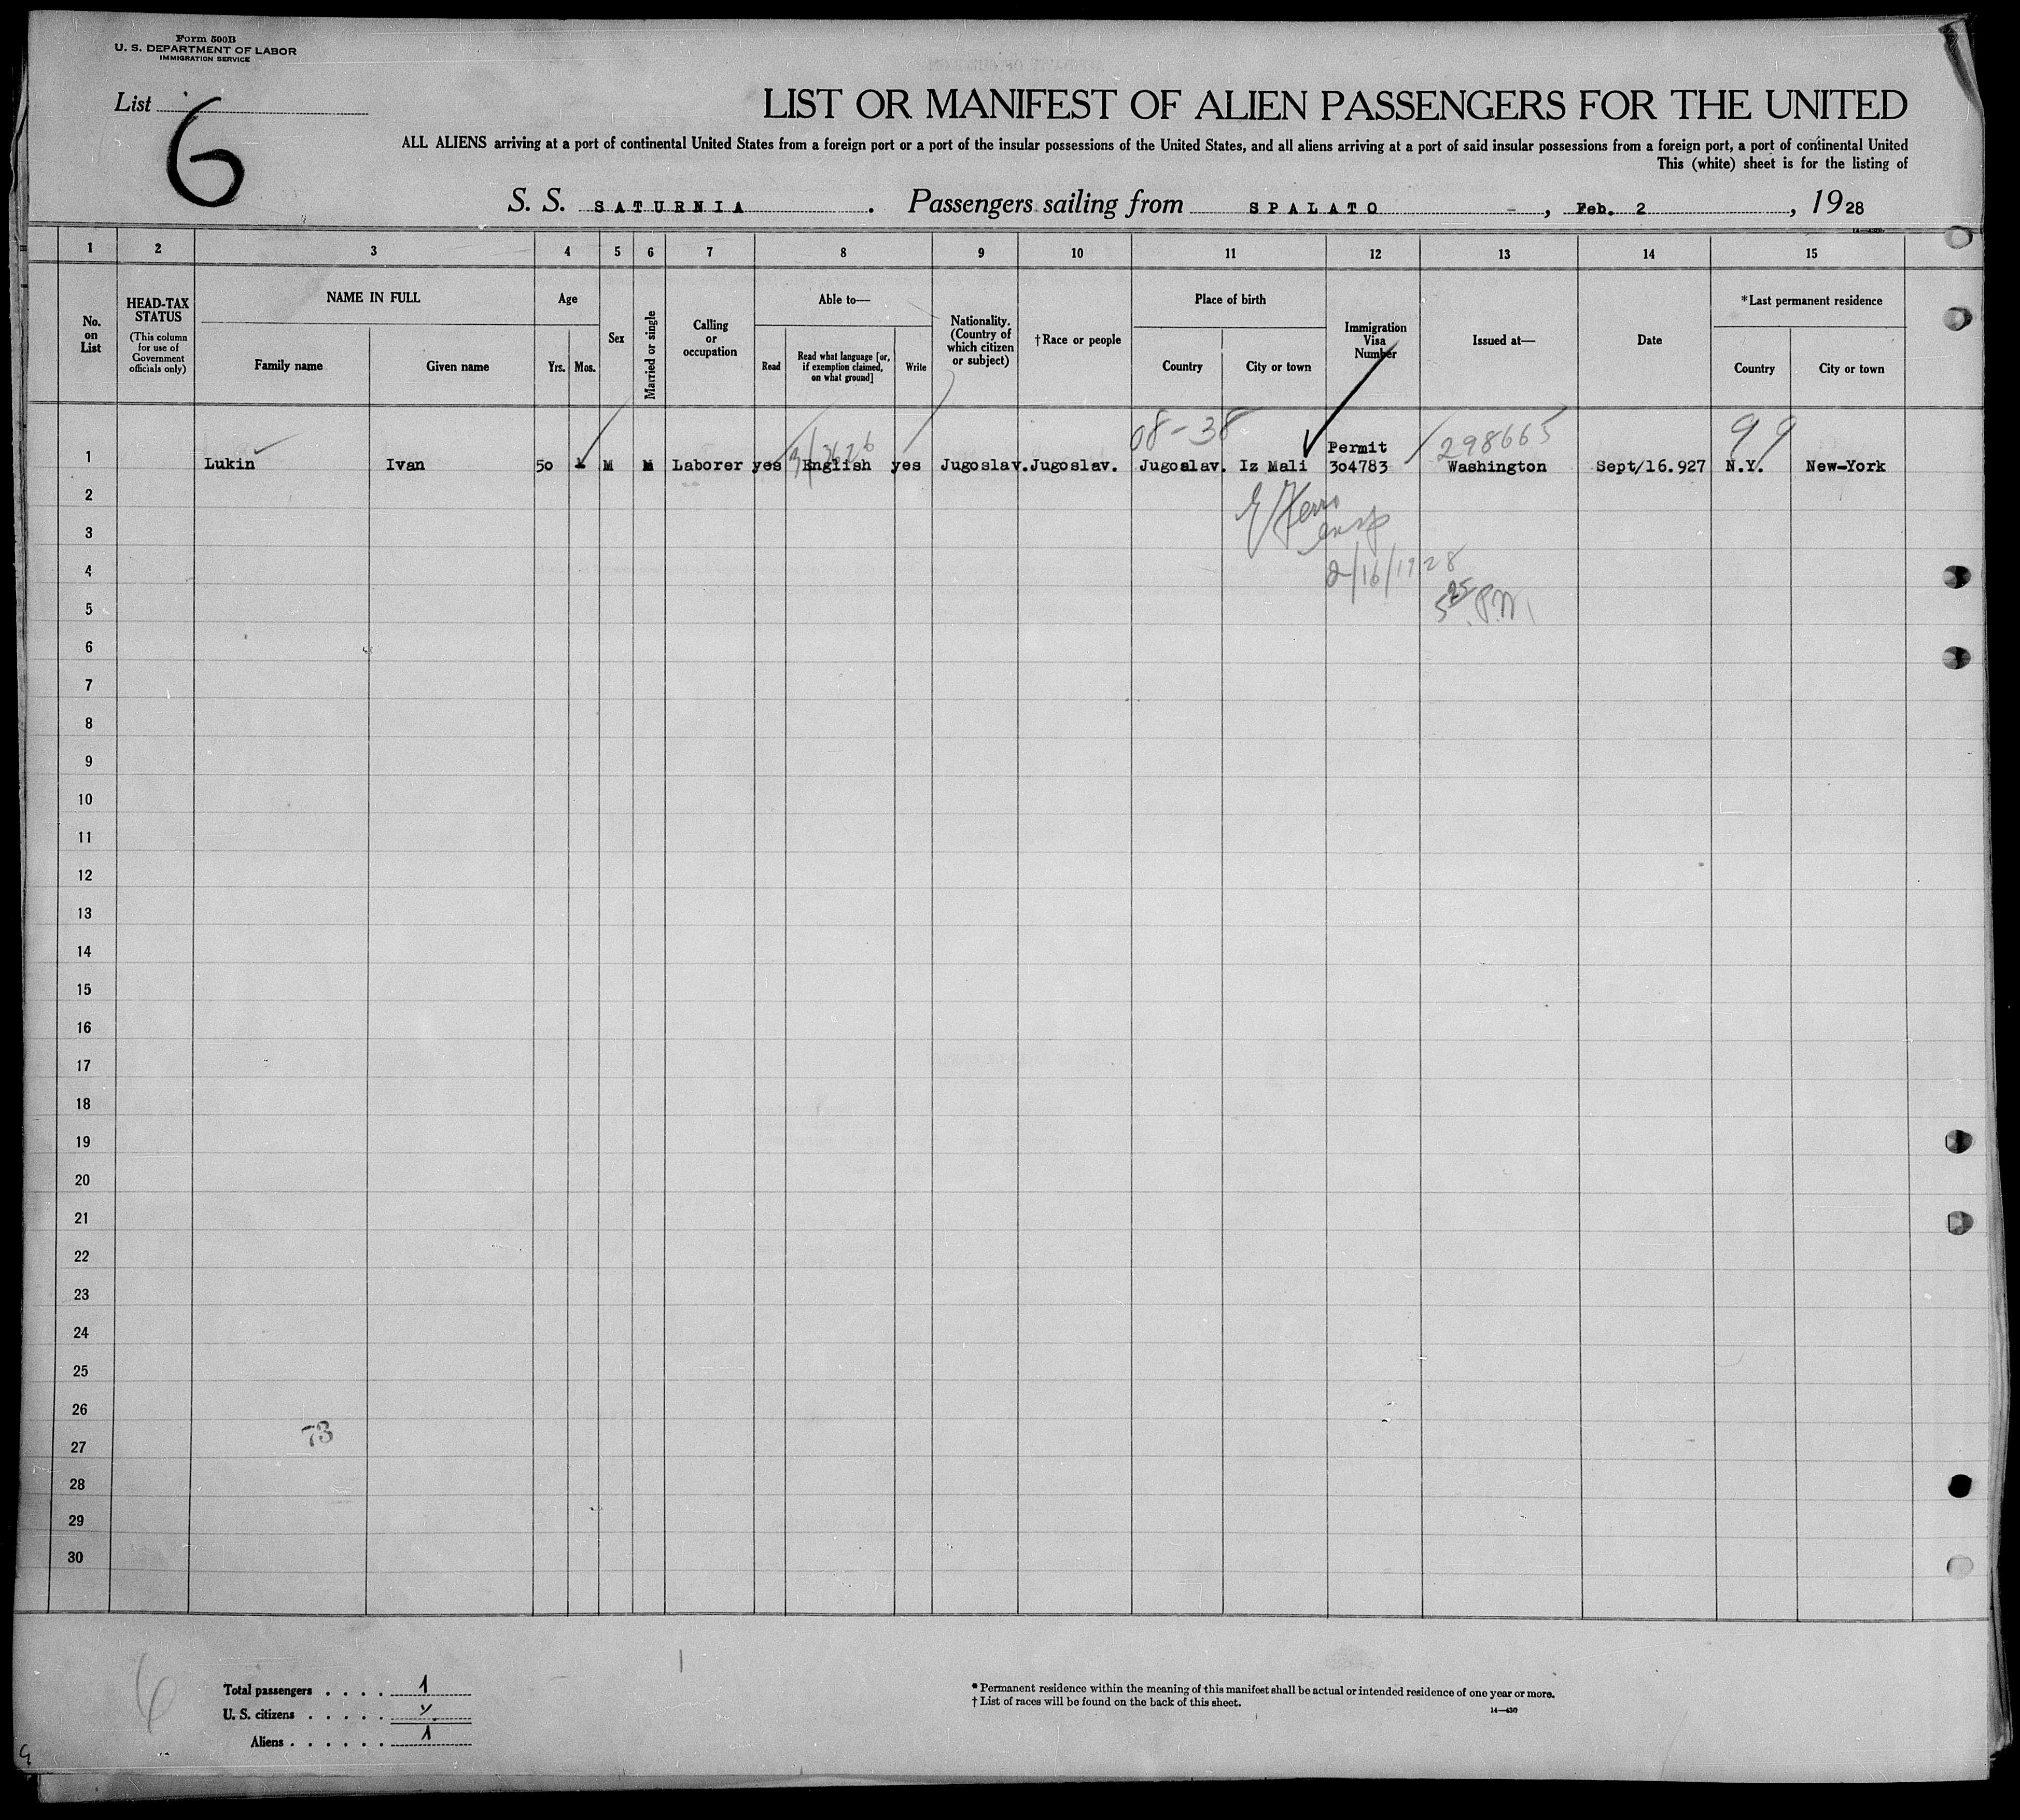 Form 500B
U. S. DEPARTMENT OF LABOR
IMMIGRATION SERVICE
List
6
LIST OR MANIFEST OF ALIEN PASSENGERS FOR THE UNITED
ALL ALIENS arriving at a port of continental United States from a foreign port or a port of the insular possessions of the United States, and all aliens arriving at a port of said insular possessions from a foreign port, a port of continental United
This (white) sheet is for the listing of
S. S. SATURNIA . Passengers sailing from SPALATO - , Feb. 2 , 1928
1 2 3 4 5 6 7 8 9 10 11 12 13 14 15
No. on List
HEAD-TAX STATUS
(This column for use of Government officials only)
NAME IN FULL
Family name
Given name
Age
Yrs. Mos.
Sex
Married or single
Calling or occupation
Able to—
Read
Read what language [or, if exemption claimed, on what ground]
Write
Nationality. (Country of which citizen or subject)
†Race or people
Place of birth
Country
City or town
Immigration Visa Number
Issued at—
Date
*Last permanent residence
Country
City or town
08-38
298665
99
Permit
1 Lukin Ivan 50 M M Laborer yes English yes Jugoslav. Jugoslav. Jugoslav. Iz Mali 304783 Washington Sept/16.927 N.Y. New-York
2
3
4
2/16/1928
5
5 25 P.M.
6
7
8
9
10
11
12
13
14
15
16
17
18
19
20
21
22
23
24
25
26
73
27
28
29
30
6
Total passengers . . . . 1
U. S. citizens . . . . .
Aliens . . . . . . 1
* Permanent residence within the meaning of this manifest shall be actual or intended residence of one year or more.
† List of races will be found on the back of this sheet.
14—430